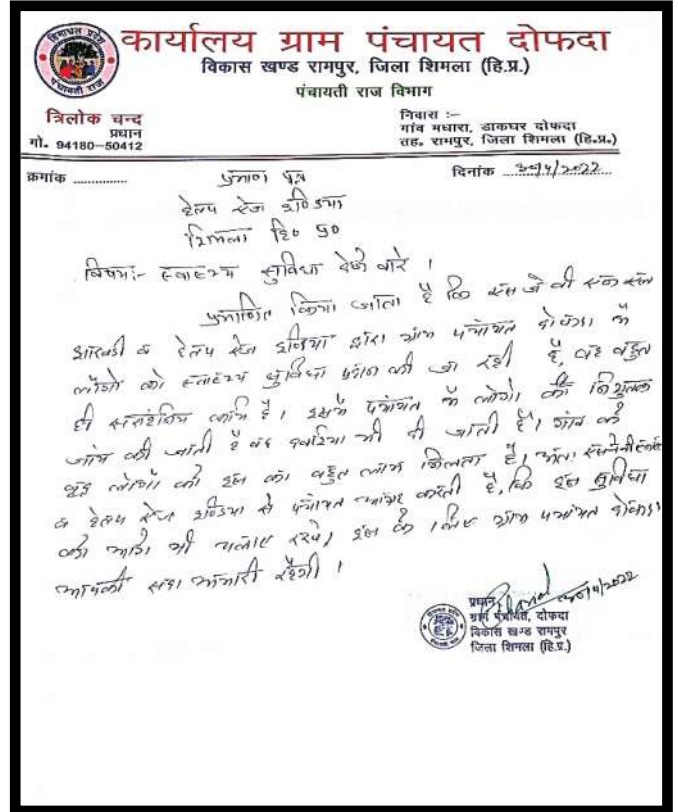 हिमाचल प्रदेश
पंचायती राज
कार्यालय ग्राम पंचायत दोफदा
विकास खण्ड रामपुर, जिला शिमला (हि.प्र.)
पंचायती राज विभाग
त्रिलोक चन्द
प्रधान
मो. 94180-50412
निवास :–
गांव मधारा, डाकघर दोफदा
तह. रामपुर, जिला शिमला (हि.प्र.)
क्रमांक ..............
दिनांक
प्रमाण पत्र
हेल्प एज इण्डिया
शिमला हि० प्र०
विषय:- स्वास्थ्य सुविधा देने बारे ।
प्रमाणित किया जाता है कि एस जे वी एन एल
आरवही व हेल्प एज इण्डिया द्वारा ग्राम पंचायत दोफदा के
लोगों को स्वास्थ्य सुविधा प्रदान की जा रही है, वह बहुत
ही कार्य है। इसमें पंचायत के लोगों की निशुल्क
जांच की जाती है व दवाईया भी दी जाती है। गांव के
वृद्ध लोगों को इस का बहुत लाभ मिलता है, अतः
व हेल्प एज इण्डिया से पंचायत आग्रह करती है, कि इस सुविधा
को आगे भी चलाए रखे, इस के लिए ग्राम पंचायत दोफदा
आपकी सदा आभारी रहेगी ।
प्रधान
ग्राम पंचायत, दोफदा
विकास खण्ड रामपुर
जिला शिमला (हि.प्र.)